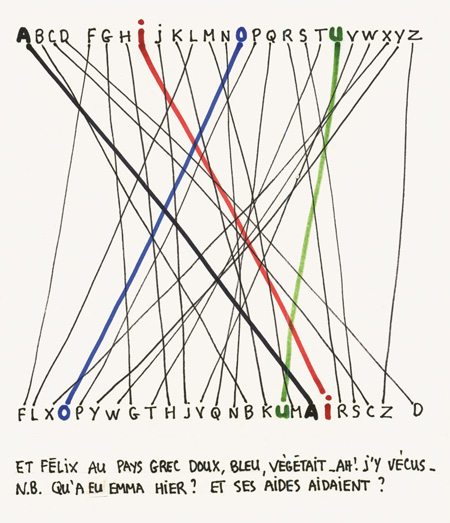 A B C D F G H i j K L M N O P Q R S T U V W X Y Z
F L X O P Y W G T H J V Q N B K U M A i R S C Z D
ET FÉLIX AU PAYS GREC DOUX, BLEU, VÉGÉTAIT _ AH! J'Y VÉCUS _
N.B. QU'A EU EMMA HIER? ET SES AIDES AIDAIENT ?